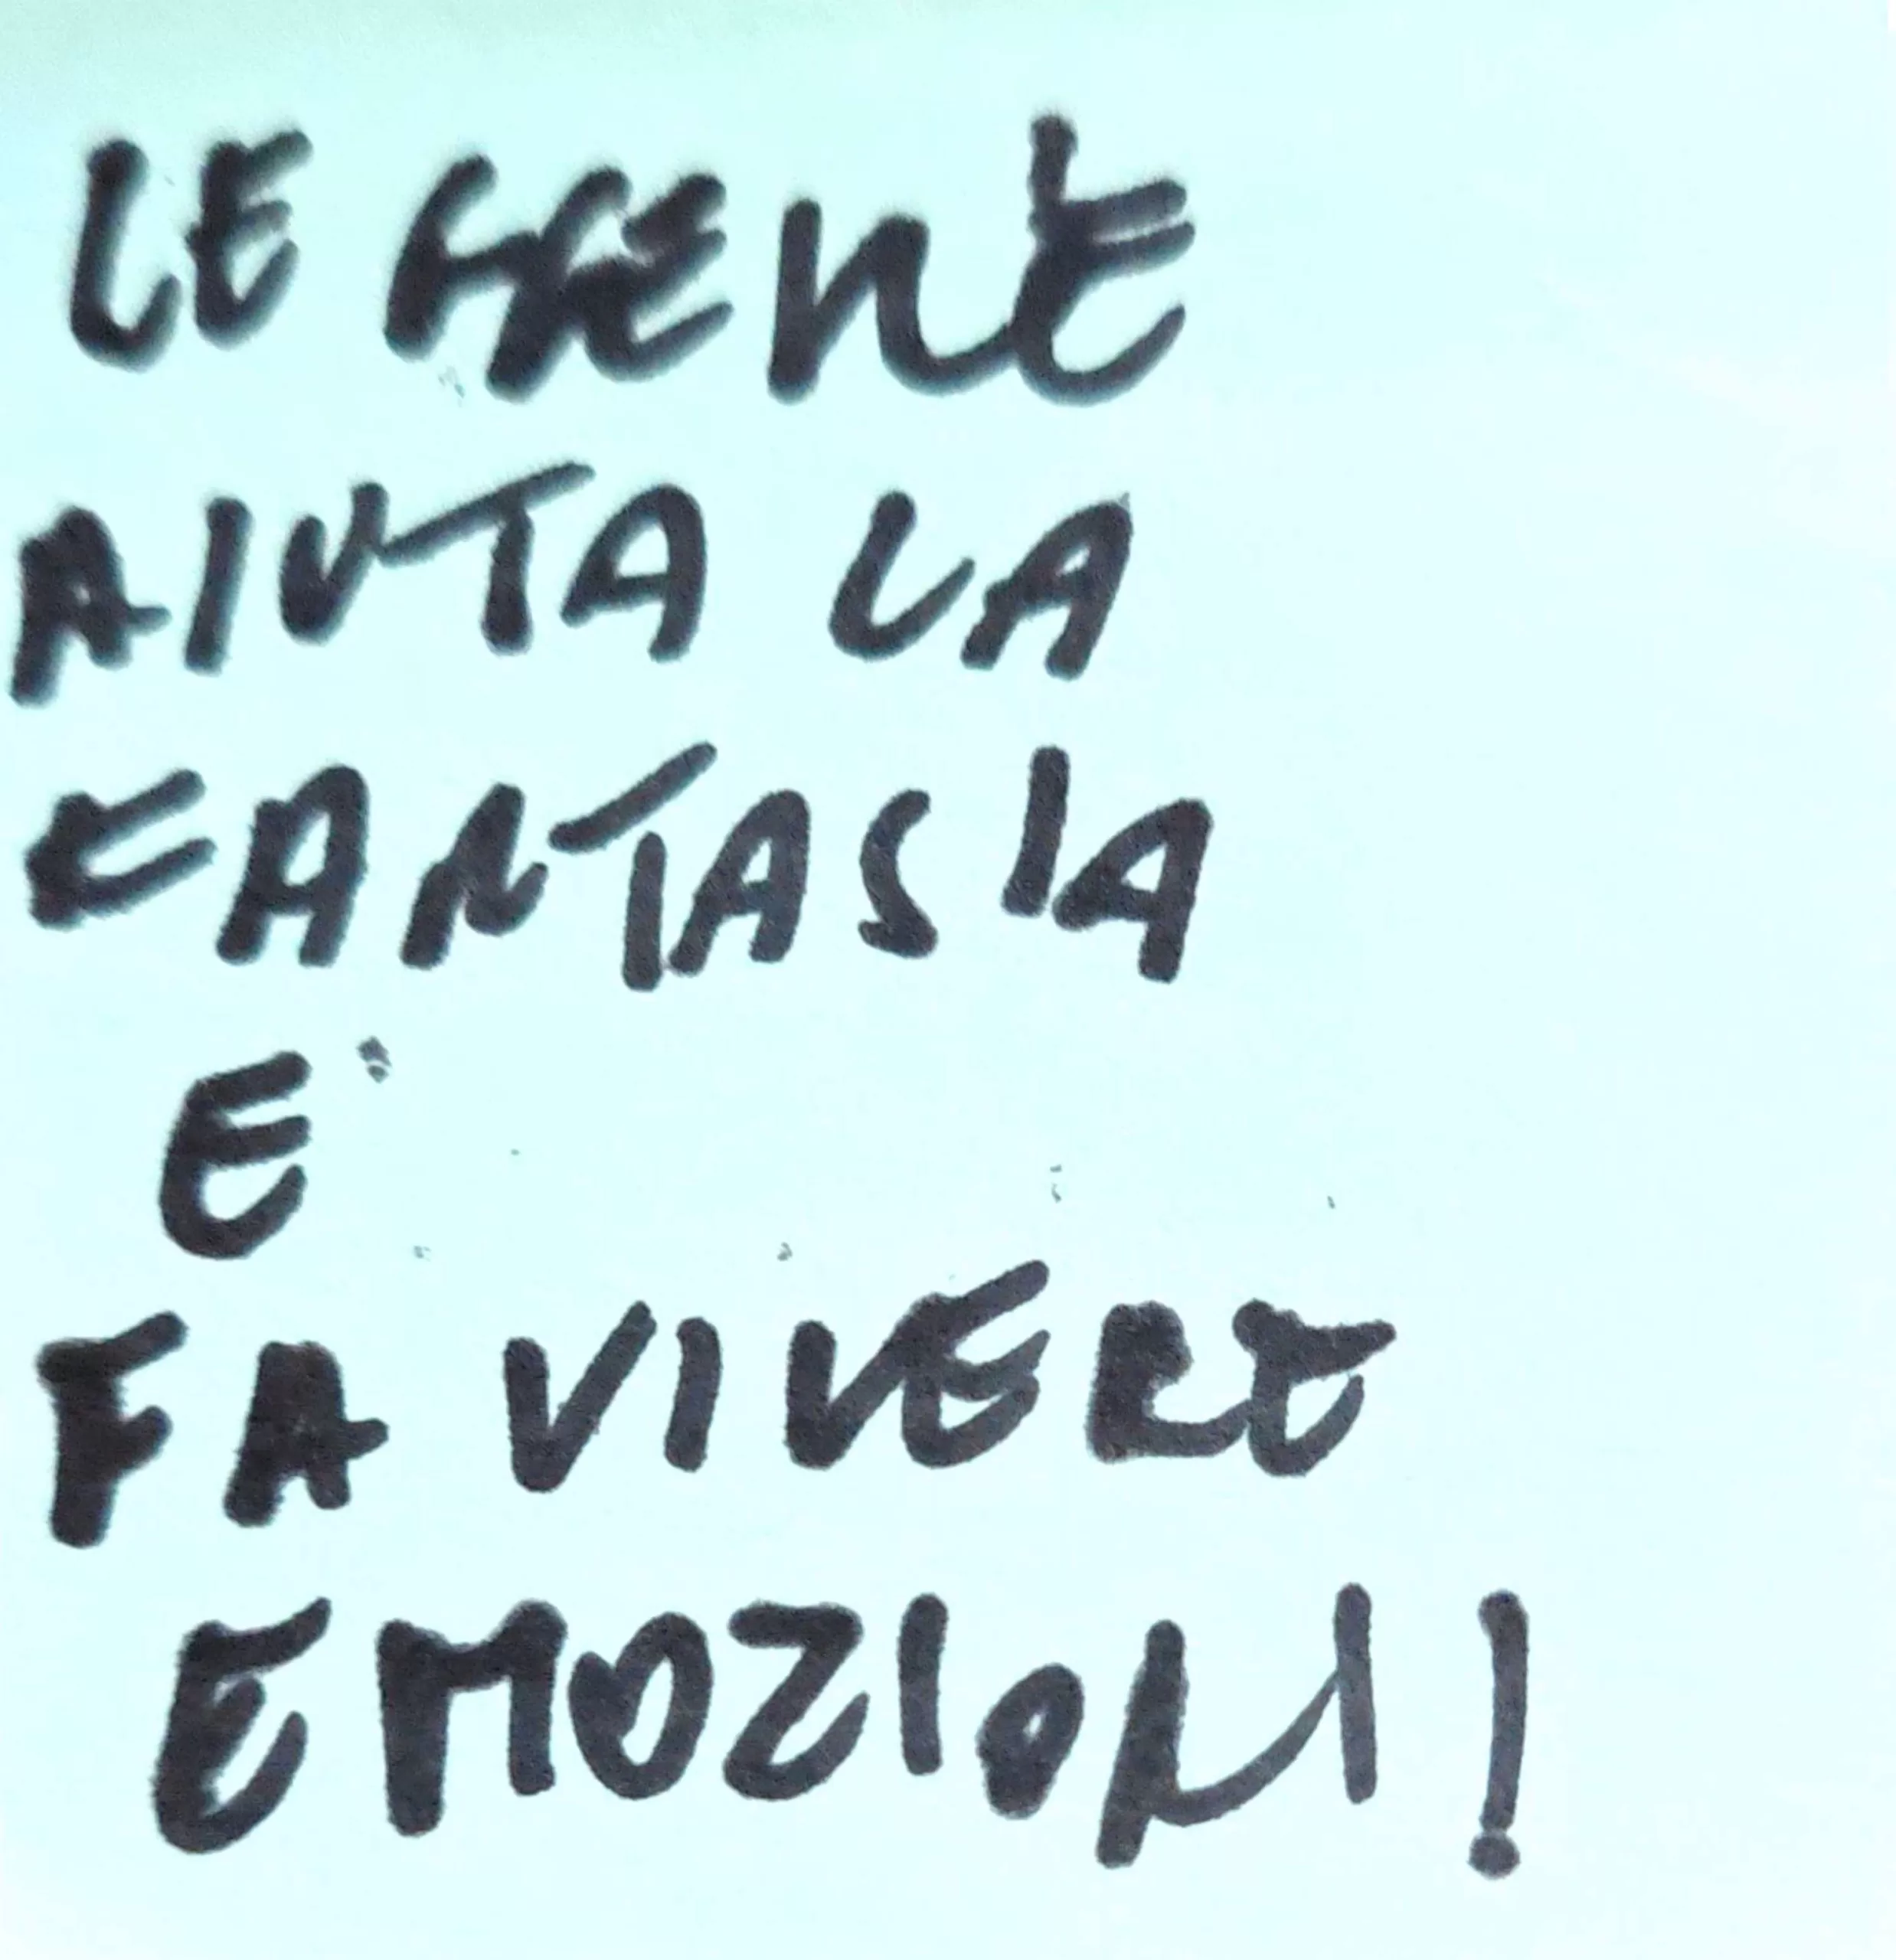 LEGGERE
AIUTA LA
FANTASIA
E
FA VIVERE
EMOZIONI!